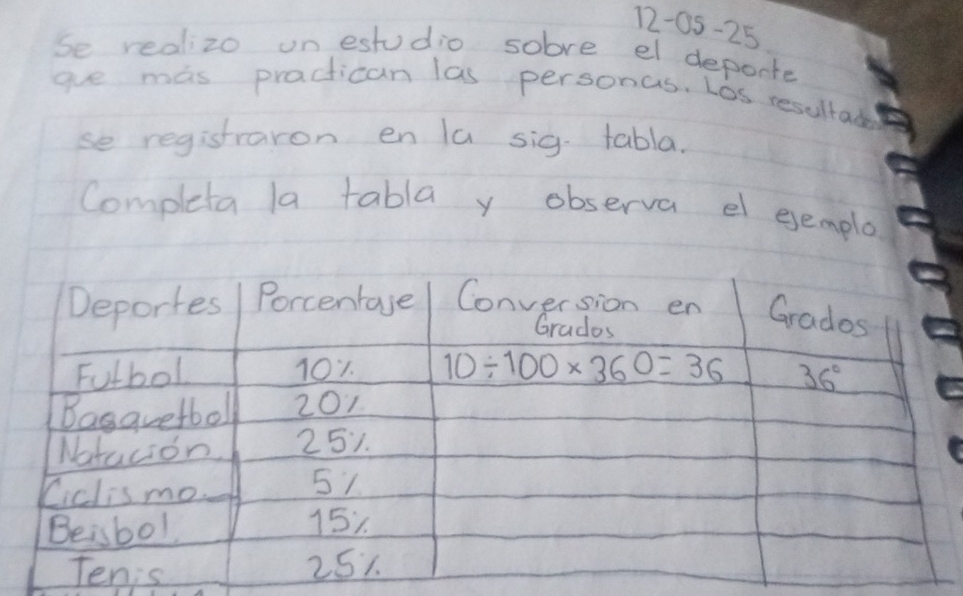 12-05-25
Se realizo un estudio sobre el deporte
que más practican las personas. Los resultados
se registraron en la sig. tabla.
Completa la tabla y observa el ejemplo
Deportes Porcentaje Conversion en Grados Grados
Futbol 10% 10÷100×360=36 36°
Basquetbol 20%
Natación 25%
Ciclismo 5%
Beisbol 15%
Tenis 25%